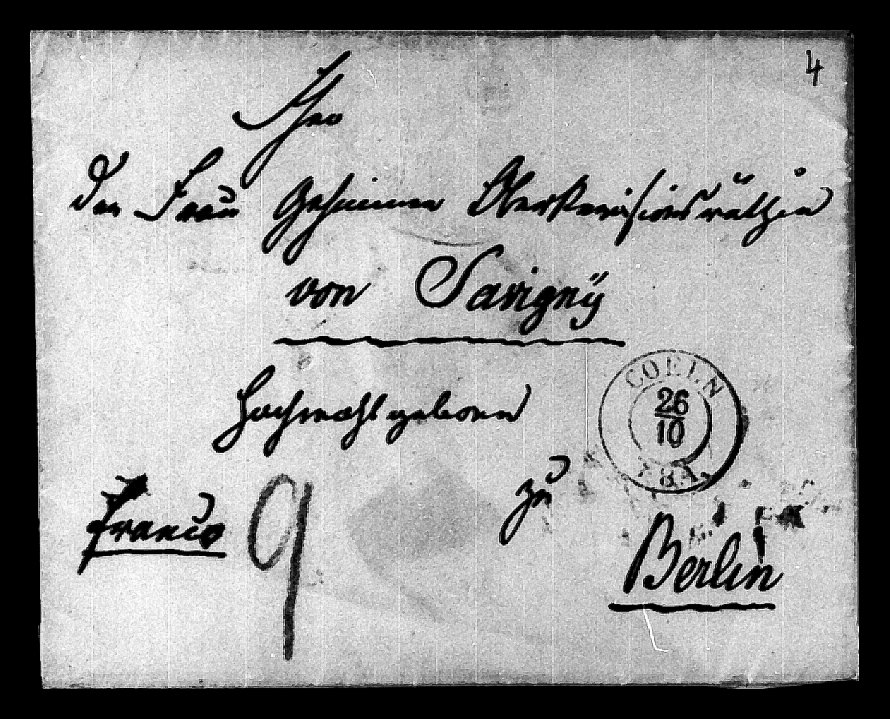 4
Ihro
der Frau Geheimen Ober Revisionsräthin
von Savigny
Hochwohlgeboren
COELN
26
10
zu
Franco
9
Berlin